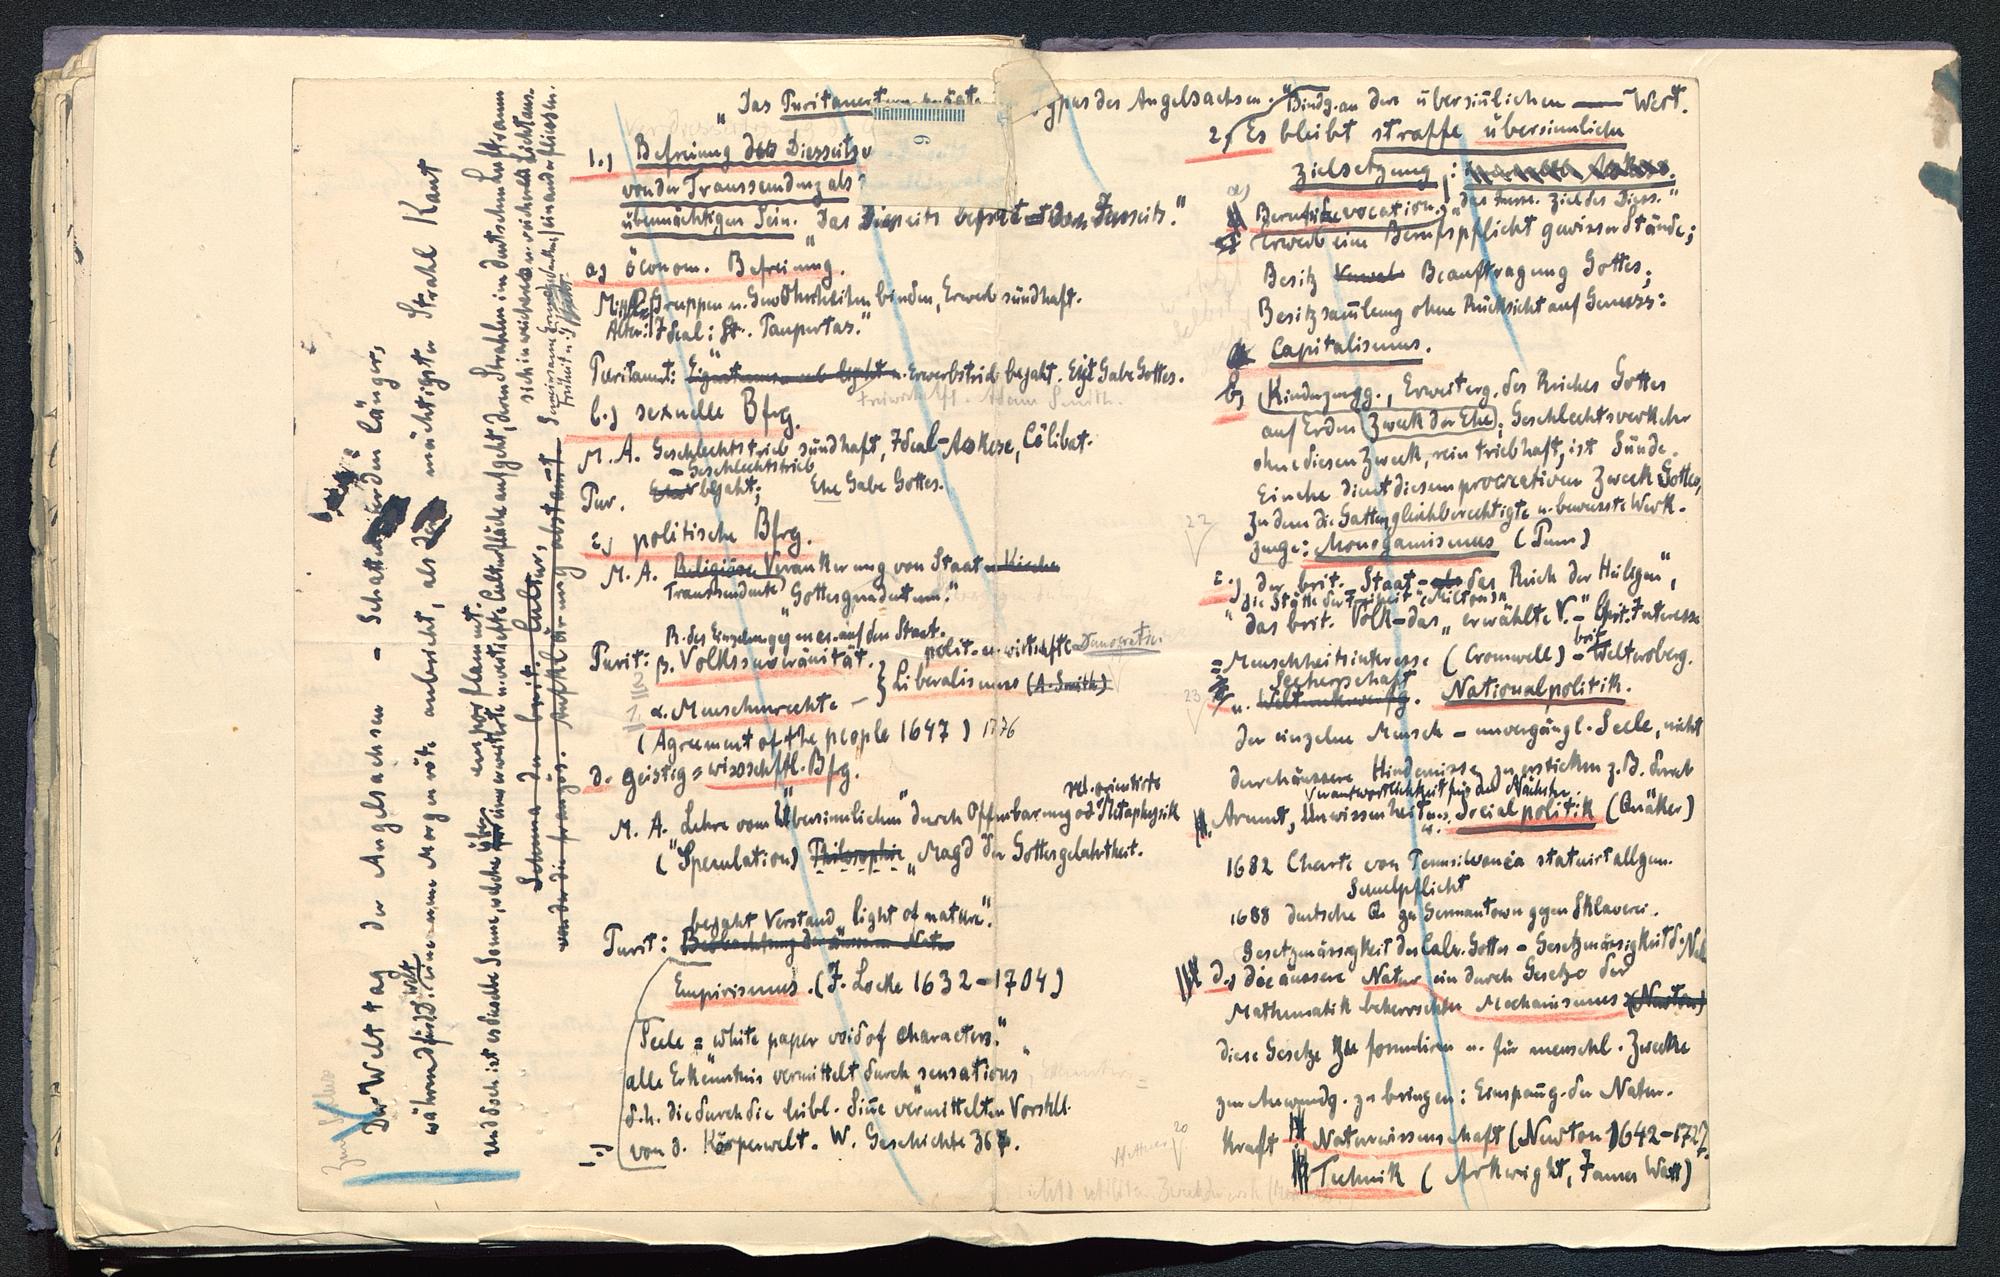 "Das Puritanert
Typus des Angelsachsen."
1.) Befreiung des Diesseits
von der Transsendenz als
übermächtigen Sein. "Das Diesseits befreit dem Jenseits."
a) öconom. Befreiung.
Gruppen u. Gewohnheiten binden, Erwerb sündhaft.
Alter: Ideal: St. Paupertas."
Puritanert: u. Erwerbstrieb bejaht. Gabe Gottes.
Adam Smith.
b.) sexuelle Bfrg.
M. A. Geschlechtstrieb sündhaft, Ideal-Askese, Cölibat.
Geschlechtstrieb
Pur. Ehe bejaht; Ehe Gabe Gottes.
c.) politische Bfrg.
M. A. Religiöse Verankerung von Staat u. Kirche
Transsendente "Gottesgnadentum."
R. des Einzelnen gegen es. auf den Staat.
Purit: β. Volkssuveränität. polit. u. wirtschaftl. Democratie
} Liberalismus (A. Smith)
1. α. Menschenrechte –
(Agreement of the people 1647) 1776
d. geistig = wissschftl. Bfg.
rel. orientierte
M. A. "Lehre vom Übersinnlichen" durch Offenbarung od Metaphysik
("Speculation) Philosophie "Magd der Gottesgelahrtheit.
bejaht Verstand "light of nature".
Purit: Beobachtung der äusseren Natur
Empirismus. (J. Locke 1632-1704)
Seele = white paper void of characters."
alle Erkenntnis vermittelt durch "sensations"
d.h. die durch die leibl. Sinne vermittelten Vorstell.
von d. Körperwelt. W. Geschichte 367.
Bindg. an den übersinnlichen — Wert.
2. Es bleibt straffe übersinnliche
Zielsetzung:
a) Berufs vocation. "das Jense. Ziel des Diess."
Erwerb eine Berufspflicht gewisser Stände;
Besitz Beauftragung Gottes;
Besitzsammlung ohne Rücksicht auf Genuss:
Capitalismus.
b) Kinderzeugg., Erweiterg. des Reiches Gottes
auf Erden Zweck der Ehe; Geschlechtsverkehr
ohne diesen Zweck, rein triebhaft, ist Sünde.
Einehe dient diesem procreativen Zweck Gottes,
zu dem die Gatten gleichberechtigte u. bewusste Werk-
22
zeuge: Monogamismus (Penn)
c.) der brit. Staat - das Reich der Heiligen",
"die Stätte der Freiheit" (Milton)
"das brit. Volk - das "erwählte V. - "Brit. Interesse
= Menschheitsinteresse (Cromwell) - brit. Welteroberg.
Seeherrschaft
23
u. Nationalpolitik.
der einzelne Mensch - unvergängl. Seele, nicht
durch äussere Hindernisse zu ersticken z. B. durch
Verantwortlichkeit für den Nächsten
Armut, Unwissenheit usw. Socialpolitik (Quäker)
1682 Charte von Pennsilvania statuirt allgem.
Schulpflicht
1688 deutsche Q. zu Germantown gegen Sklaverei.
Gesetzmässigkeit des Calv. Gottes - Gesetzmässigkeit d. Nat
d.) die äussere Natur ein durch Gesetze der
Mathematik beherrschter Mechanismus (Newton)
diese Gesetze zu formuliren u. für menschl. Zwecke
zur Anwendg. zu bringen: Einspang. der Natur-
kraft Naturwissenschaft (Newton 1642-1727.
Technik (Arkwright, James Watt)
20
Hettner
Der Welttag der Angelsachsen - Schatten werden länger,
während eine neue Morgenröte anbricht, als mächtigster Strahl Kant
emporflammt.
und doch ist es dieselbe Sonne, welche über eine erweiterte u. vertiefte Culturfläche aufgeht, deren Strahlen im deutschen Luftraum
sich in weicheres
Sonne der brit. Cultur,
von der die französ. Aufklärung abstammt
6